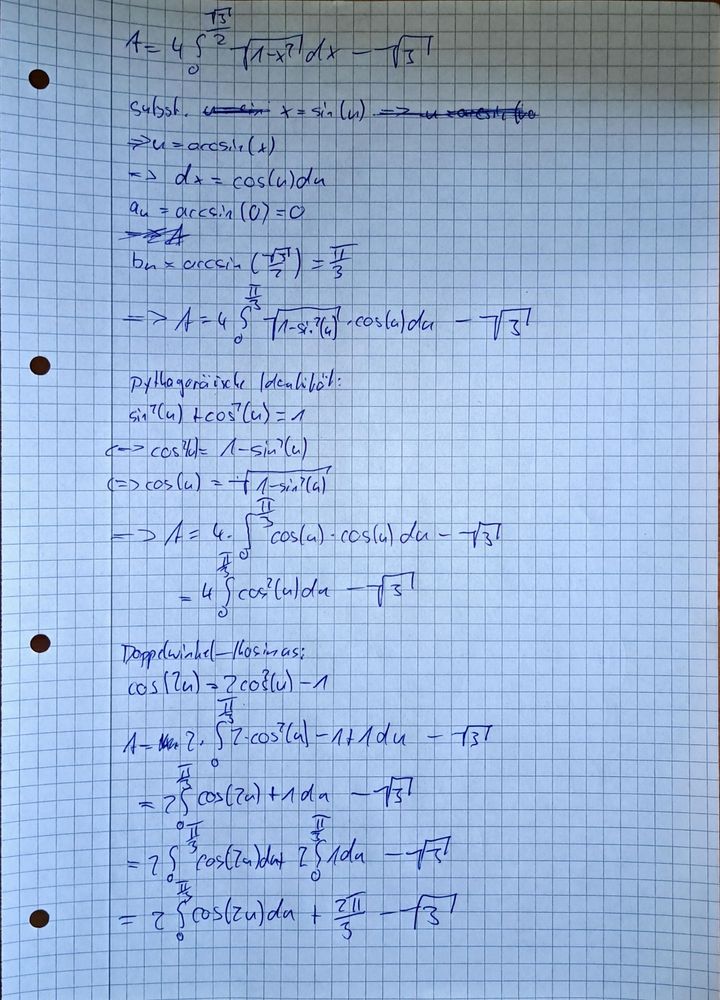 A = 4 ∫₀^(√3/2) √(1-x²) dx - √3
Subst. x = sin(u)
=> u = arcsin(x)
=> dx = cos(u) du
aᵤ = arcsin(0) = 0
bᵤ = arcsin(√3/2) = π/3
=> A = 4 ∫₀^(π/3) √(1-sin²(u)) · cos(u) du - √3
pythagoräische Identität:
sin²(u) + cos²(u) = 1
<=> cos²(u) = 1-sin²(u)
<=> cos(u) = √(1-sin²(u))
=> A = 4 · ∫₀^(π/3) cos(u) · cos(u) du - √3
= 4 ∫₀^(π/3) cos²(u) du - √3
Doppelwinkel-Kosinus:
cos(2u) = 2cos²(u) - 1
A = 2 · ∫₀^(π/3) 2·cos²(u) - 1 + 1 du - √3
= 2 ∫₀^(π/3) cos(2u) + 1 du - √3
= 2 ∫₀^(π/3) cos(2u) du + 2 ∫₀^(π/3) 1 du - √3
= 2 ∫₀^(π/3) cos(2u) du + 2π/3 - √3